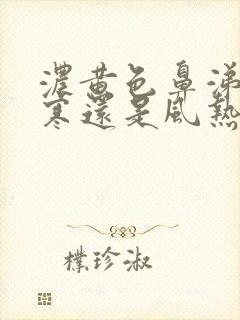 濃黃色鼻涕
寒還是風熱
樸珍淑